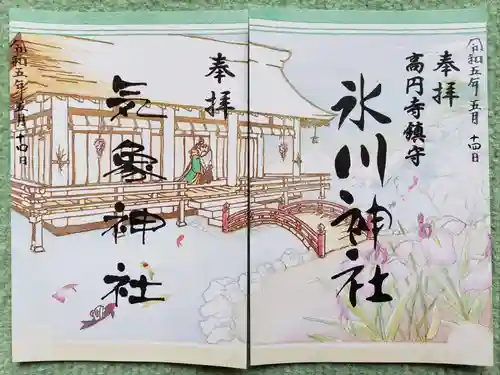 奉拝
高円寺鎮守
氷川神社
令和五年五月十四日
奉拝
気象神社
令和五年五月十四日